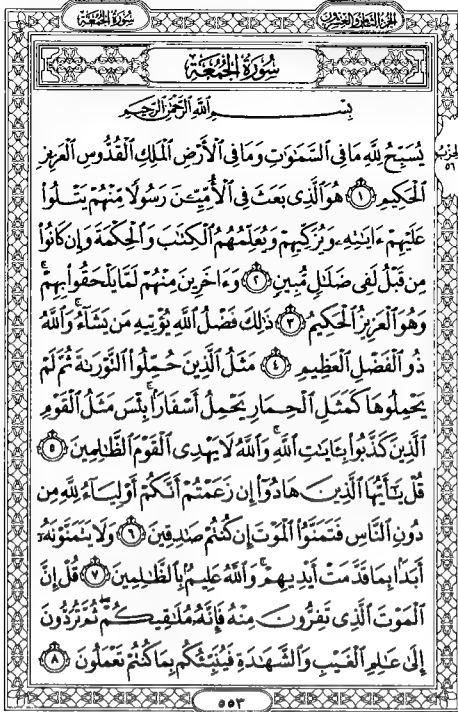 سُورَةُ الجُمُعَةِ
الجُزْءُ الثَّامِنُ وَالعِشْرُونَ
سُورَةُ الجُمُعَةِ
بِسْمِ اللَّهِ الرَّحْمَٰنِ الرَّحِيمِ
يُسَبِّحُ لِلَّهِ مَا فِي السَّمَٰوَٰتِ وَمَا فِي الْأَرْضِ الْمَلِكِ الْقُدُّوسِ الْعَزِيزِ
الحِزْبُ ٥٦
الْحَكِيمِ ١ هُوَ الَّذِي بَعَثَ فِي الْأُمِّيِّـنَ رَسُولًا مِّنْهُمْ يَتْلُوا۟
عَلَيْهِمْ ءَايَٰتِهِۦ وَيُزَكِّيهِمْ وَيُعَلِّمُهُمُ الْكِتَٰبَ وَالْحِكْمَةَ وَإِن كَانُوا۟
مِن قَبْلُ لَفِي ضَلَٰلٍ مُّبِينٍ ٢ وَءَاخَرِينَ مِنْهُمْ لَمَّا يَلْحَقُوا۟ بِهِمْ ۚ
وَهُوَ الْعَزِيزُ الْحَكِيمُ ٣ ذَٰلِكَ فَضْلُ اللَّهِ يُؤْتِيهِ مَن يَشَآءُ ۚ وَاللَّهُ
ذُو الْفَضْلِ الْعَظِيمِ ٤ مَثَلُ الَّذِينَ حُمِّلُوا۟ التَّوْرَىٰةَ ثُمَّ لَمْ
يَحْمِلُوهَا كَمَثَلِ الْحِمَارِ يَحْمِلُ أَسْفَارًۢا ۚ بِئْسَ مَثَلُ الْقَوْمِ
الَّذِينَ كَذَّبُوا۟ بِـَٔايَٰتِ اللَّهِ ۚ وَاللَّهُ لَا يَهْدِي الْقَوْمَ الظَّٰلِمِينَ ٥
قُلْ يَٰٓأَيُّهَا الَّذِينَ هَادُوٓا۟ إِن زَعَمْتُمْ أَنَّكُمْ أَوْلِيَآءُ لِلَّهِ مِن
دُونِ النَّاسِ فَتَمَنَّوُا۟ الْمَوْتَ إِن كُنتُمْ صَٰدِقِينَ ٦ وَلَا يَتَمَنَّوْنَهُۥٓ
أَبَدًۢا بِمَا قَدَّمَتْ أَيْدِيهِمْ ۚ وَاللَّهُ عَلِيمٌۢ بِالظَّٰلِمِينَ ٧ قُلْ إِنَّ
الْمَوْتَ الَّذِي تَفِرُّونَ مِنْهُ فَإِنَّهُۥ مُلَٰقِيكُمْ ۖ ثُمَّ تُرَدُّونَ
إِلَىٰ عَٰلِمِ الْغَيْبِ وَالشَّهَٰدَةِ فَيُنَبِّئُكُم بِمَا كُنتُمْ تَعْمَلُونَ ٨
٥٥٣